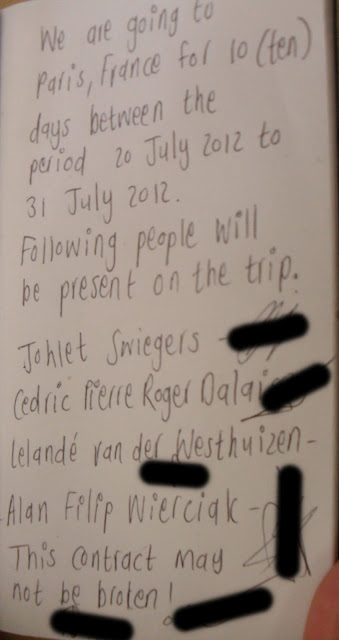 We are going to
Paris, France for 10 (ten)
days between the
period 20 July 2012 to
31 July 2012.
Following people will
be present on the trip.
Johlet Swiegers -
Cedric Pierre Roger
Lelandé van der Westhuizen -
Alan Filip Wierciak -
This contract may
not be broken!